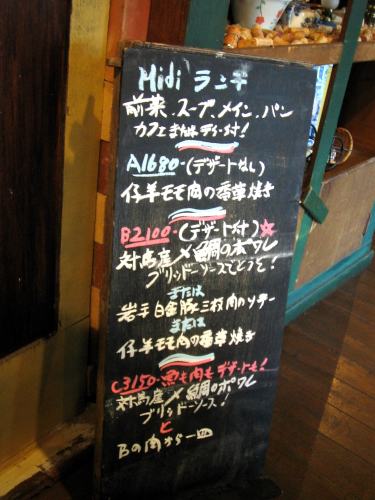 Midi ランチ
前菜、スープ、メイン、パン
カフェまたはティー付!
A1680-(デザートなし)
仔羊モモ肉の香草焼き
B2100-(デザート付)☆
対馬産〆鯛のポワレ
ブリッドーソースでどうぞ!
または
岩手白金豚三枚肉のソテー
または
仔羊モモ肉の香草焼き
C3150-魚も肉もデザートも!
対馬産〆鯛のポワレ
ブリッドーソース!
と
Bの肉から一皿